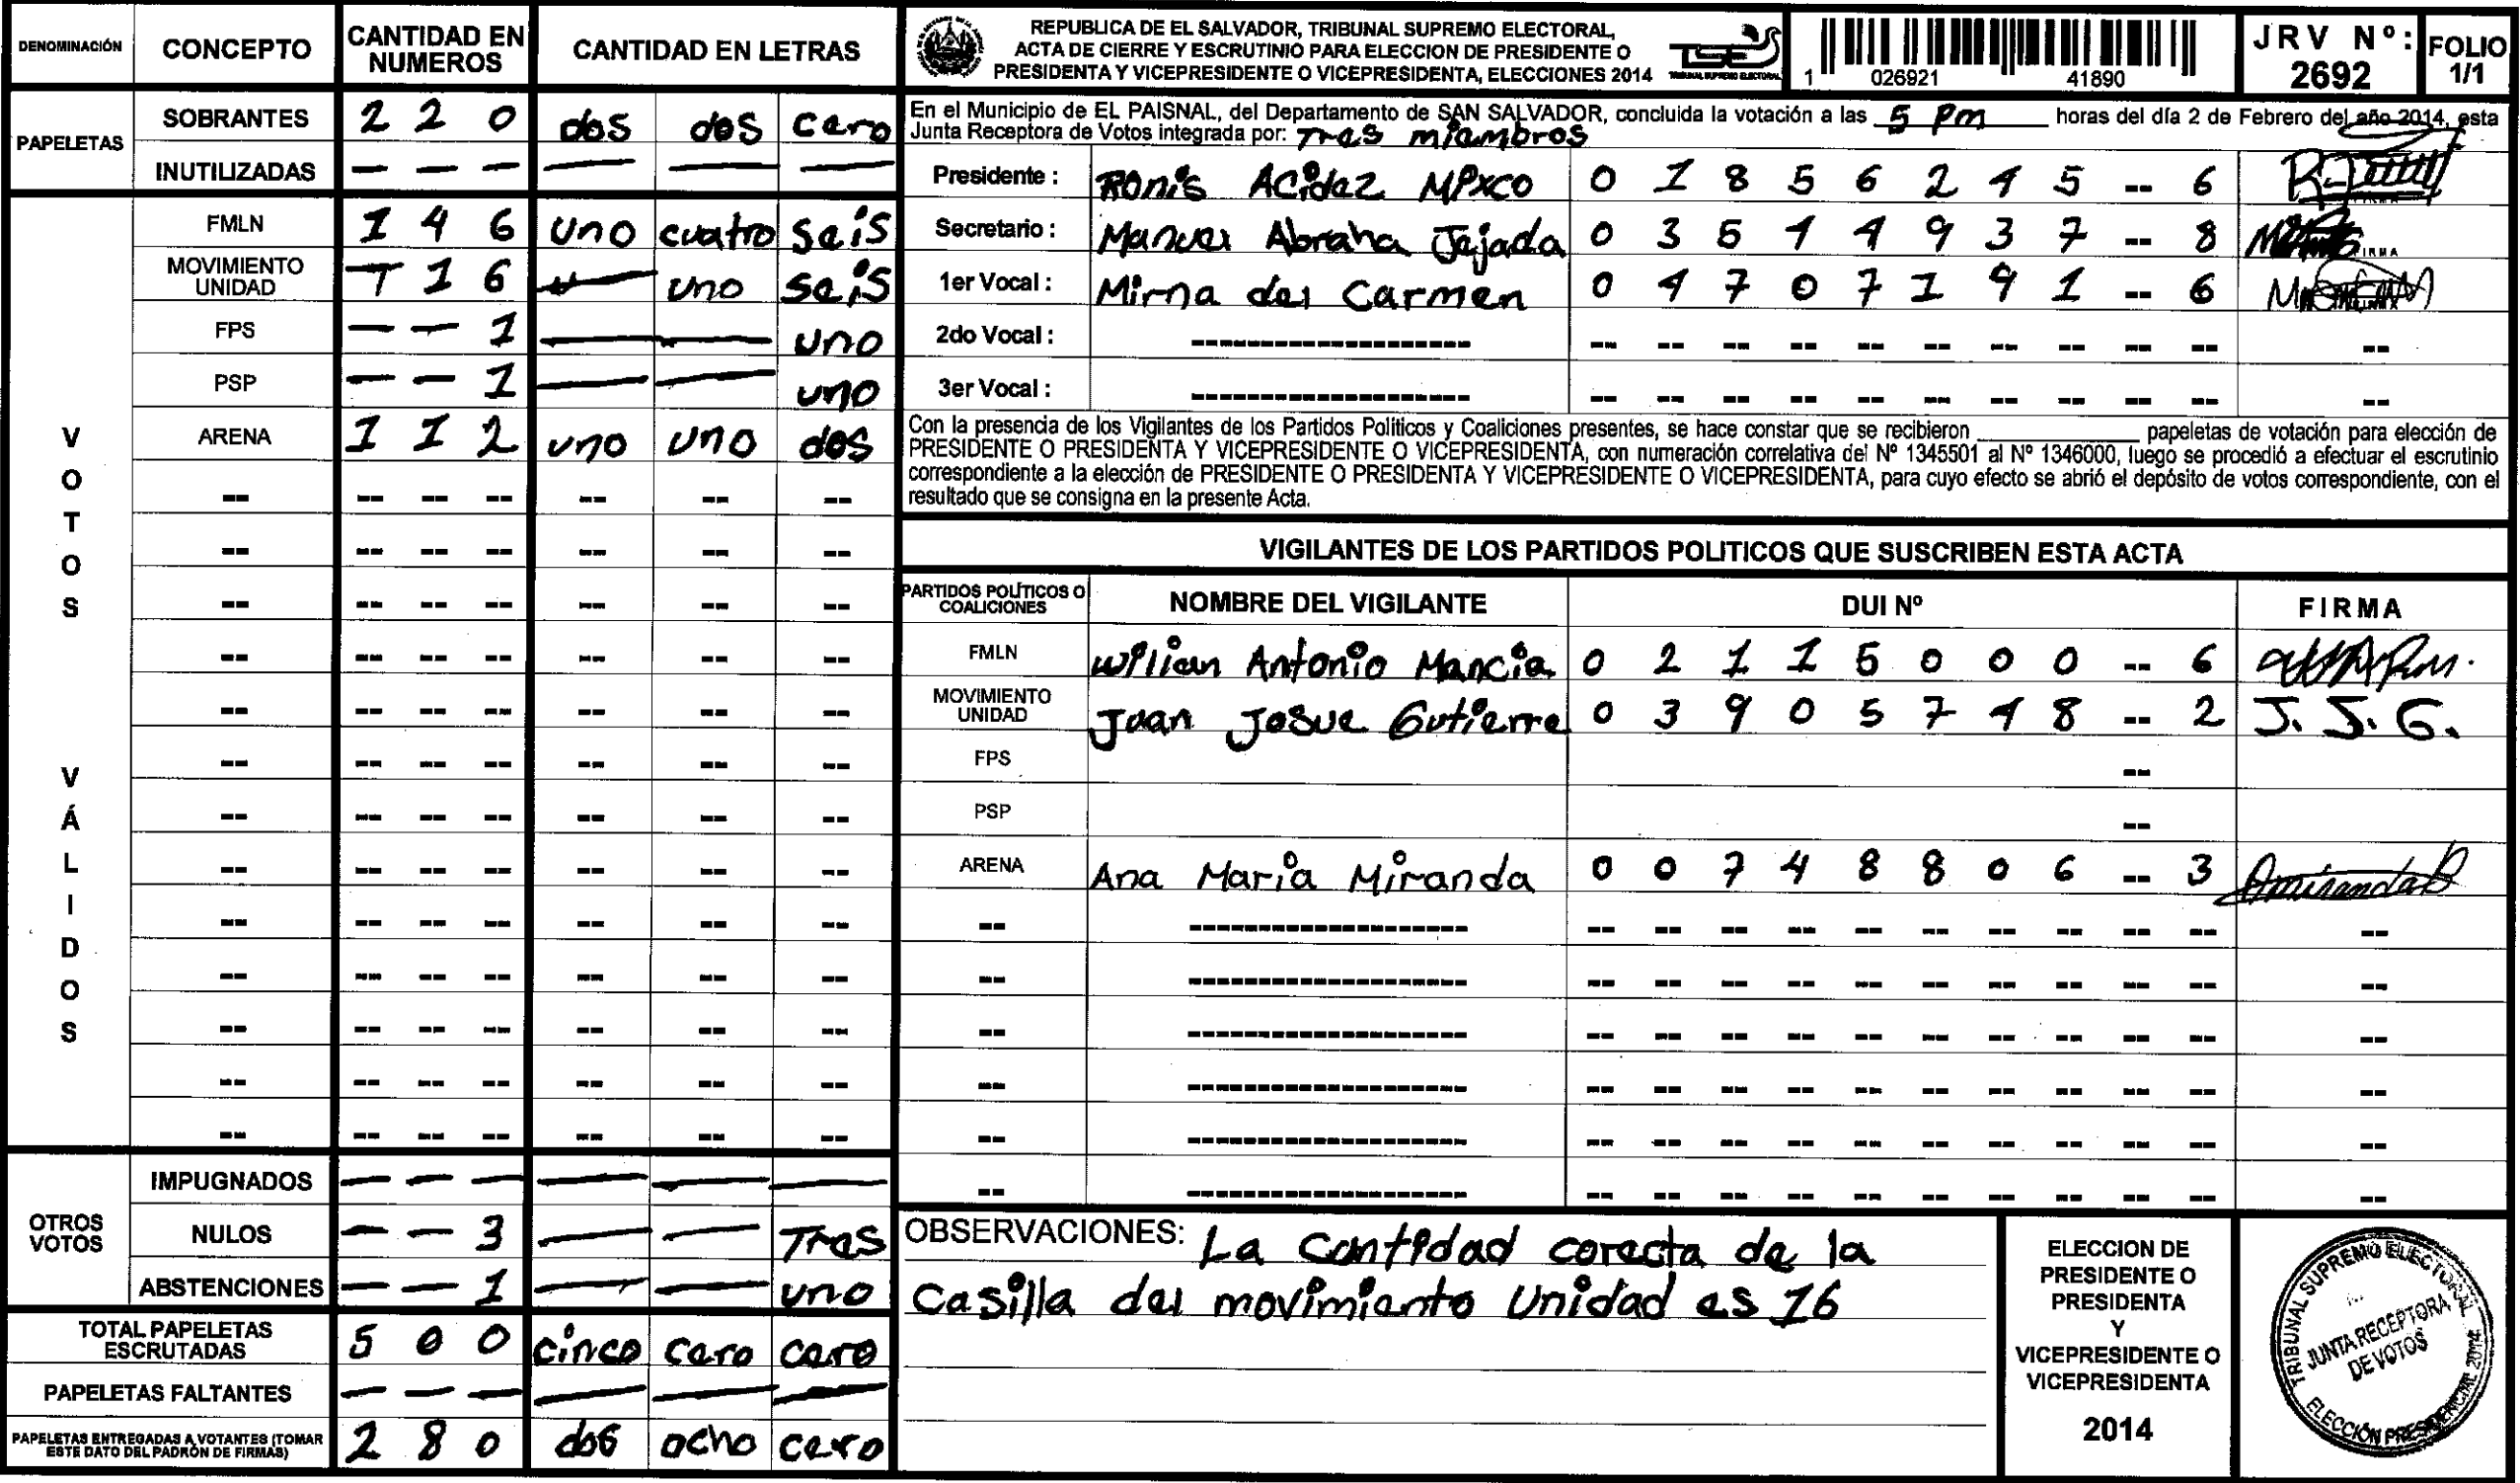 DENOMINACIÓN CONCEPTO CANTIDAD EN NUMEROS CANTIDAD EN LETRAS
PAPELETAS
SOBRANTES 2 2 0 dos dos cero
INUTILIZADAS — — — — — —
VOTOS VÁLIDOS
FMLN 1 4 6 uno cuatro seis
MOVIMIENTO UNIDAD 1 6 — uno seis
FPS — — 1 — — uno
PSP — — 1 — — uno
ARENA 1 1 2 uno uno dos
OTROS VOTOS
IMPUGNADOS — — — — — —
NULOS — — 3 — — Tres
ABSTENCIONES — — 1 — — uno
TOTAL PAPELETAS ESCRUTADAS 5 0 0 cinco cero cero
PAPELETAS FALTANTES — — — — — —
PAPELETAS ENTREGADAS A VOTANTES (TOMAR ESTE DATO DEL PADRÓN DE FIRMAS) 2 8 0 dos ocho cero
REPUBLICA DE EL SALVADOR, TRIBUNAL SUPREMO ELECTORAL,
ACTA DE CIERRE Y ESCRUTINIO PARA ELECCION DE PRESIDENTE O
PRESIDENTA Y VICEPRESIDENTE O VICEPRESIDENTA, ELECCIONES 2014
TSE
TRIBUNAL SUPREMO ELECTORAL
1 026921 41890
JRV Nº: 2692
FOLIO 1/1
En el Municipio de EL PAISNAL, del Departamento de SAN SALVADOR, concluida la votación a las 5 pm horas del día 2 de Febrero del año 2014, esta
Junta Receptora de Votos integrada por: Tres miembros
Presidente : Ronis 0 1 8 5 6 2 4 5 -- 6
Secretario : Manuel Abraha Tejada 0 3 5 4 4 9 3 7 -- 8 FIRMA
1er Vocal : Mirna del Carmen 0 4 7 0 7 1 9 1 -- 6
2do Vocal :
3er Vocal :
Con la presencia de los Vigilantes de los Partidos Politicos y Coaliciones presentes, se hace constar que se recibieron ____ papeletas de votación para elección de
PRESIDENTE O PRESIDENTA Y VICEPRESIDENTE O VICEPRESIDENTA, con numeración correlativa del Nº 1345501 al Nº 1346000, luego se procedió a efectuar el escrutinio
correspondiente a la elección de PRESIDENTE O PRESIDENTA Y VICEPRESIDENTE O VICEPRESIDENTA, para cuyo efecto se abrió el depósito de votos correspondiente, con el
resultado que se consigna en la presente Acta.
VIGILANTES DE LOS PARTIDOS POLITICOS QUE SUSCRIBEN ESTA ACTA
PARTIDOS POLÍTICOS O COALICIONES NOMBRE DEL VIGILANTE DUI Nº FIRMA
FMLN Wilian Antonio Mancia 0 2 1 1 5 0 0 0 -- 6
MOVIMIENTO UNIDAD Juan Josue Gutierre 0 3 9 0 5 7 4 8 -- 2 J. J. G.
FPS --
PSP --
ARENA Ana Maria Miranda 0 0 7 4 8 8 0 6 -- 3 AmirandaB
OBSERVACIONES: La cantidad corecta de la
Casilla del movimiento Unidad es 16
ELECCION DE
PRESIDENTE O
PRESIDENTA
Y
VICEPRESIDENTE O
VICEPRESIDENTA
2014
TRIBUNAL SUPREMO ELECTORAL
JUNTA RECEPTORA
DE VOTOS
ELECCIÓN PRESIDENCIAL 2014